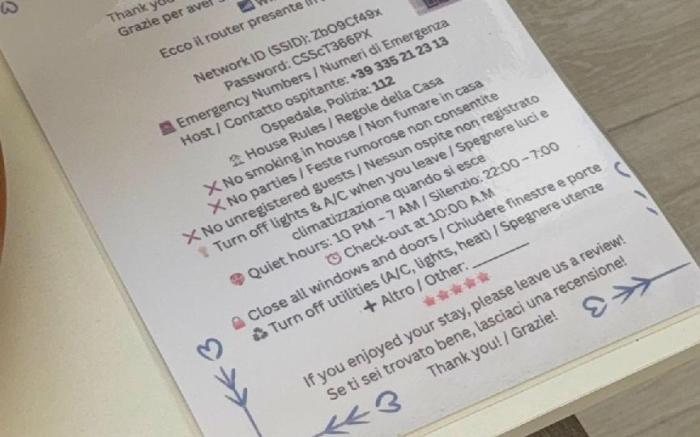 Thank you
Grazie per aver
Ecco il router presente in
Network ID (SSID): ZbO9Cf49x
Password: CS5cT366PX
Emergency Numbers / Numeri di Emergenza
Host / Contatto ospitante: +39 335 21 23 13
Ospedale, Polizia: 112
House Rules / Regole della Casa
❌ No smoking in house / Non fumare in casa
❌ No parties / Feste rumorose non consentite
❌ No unregistered guests / Nessun ospite non registrato
Turn off lights & A/C when you leave / Spegnere luci e
climatizzazione quando si esce
Quiet hours: 10 PM – 7 AM / Silenzio: 22:00 – 7:00
⏰ Check-out at 10:00 A.M
🔒 Close all windows and doors / Chiudere finestre e porte
♻ Turn off utilities (A/C, lights, heat) / Spegnere utenze
➕ Altro / Other: ________
If you enjoyed your stay, please leave us a review!
Se ti sei trovato bene, lasciaci una recensione!
Thank you! / Grazie!